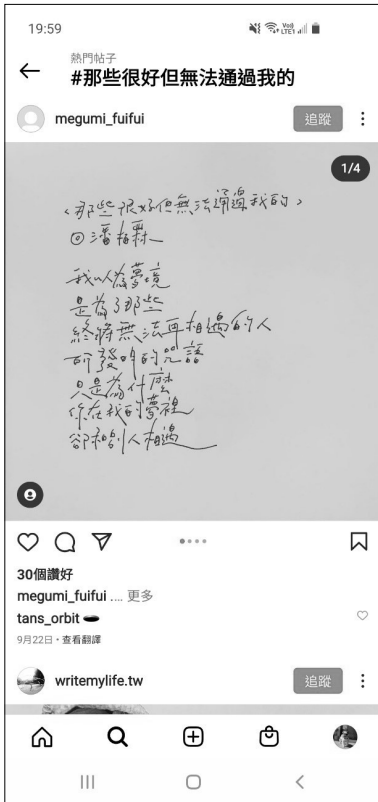 19:59
Vo))
LTE1
熱門帖子
#那些很好但無法通過我的
megumi_fuifui
追蹤
1/4
〈那些很好但無法通過我的〉
◎潘柏霖
我以為夢境
是為了那些
終將無法再相遇的人
所發明的咒語
只是為什麼
你在我的夢裡
卻和別人相遇
30個讚好
megumi_fuifui .... 更多
tans_orbit
9月22日・查看翻譯
writemylife.tw
追蹤